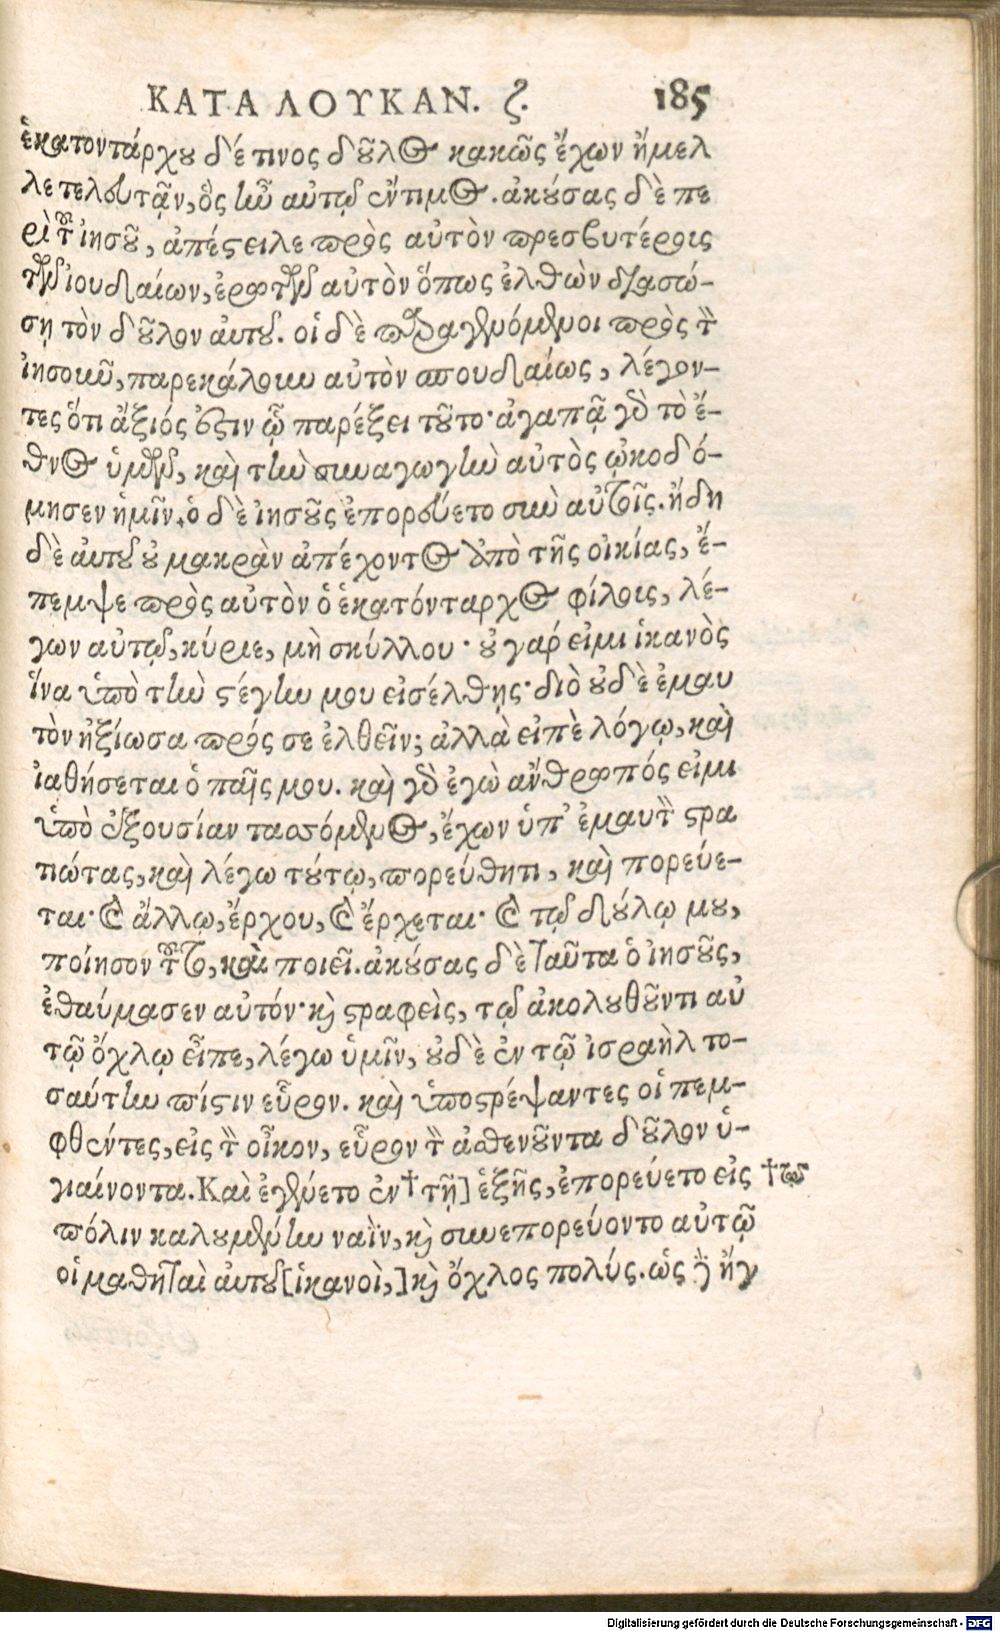 ΚΑΤΑ ΛΟΥΚΑΝ. ζ. 185
ἑκατοντάρχου δέ τινος δοῦλος κακῶς ἔχων ἤμελ
λε τελευτᾷν, ὃς ἦν αὐτῷ ἔντιμος. ἀκούσας δὲ πε
ρὶ τοῦ ἰησοῦ, ἀπέστειλε πρὸς αὐτὸν πρεσβυτέρους
τῶν ἰουδαίων, ἐρωτῶν αὐτὸν ὅπως ἐλθὼν διασώ-
σῃ τὸν δοῦλον αὐτοῦ. οἱ δὲ παραγενόμενοι πρὸς τὸν
ἰησοῦν, παρεκάλουν αὐτὸν σπουδαίως, λέγον-
τες ὅτι ἄξιός ἐστιν ᾧ παρέξει τοῦτο· ἀγαπᾷ γὰρ τὸ ἔ-
θνος ὑμῶν, καὶ τὴν συναγωγὴν αὐτὸς ᾠκοδό-
μησεν ἡμῖν. ὁ δὲ ἰησοῦς ἐπορεύετο σὺν αὐτοῖς. ἤδη
δὲ αὐτοῦ οὐ μακρὰν ἀπέχοντος ἀπὸ τῆς οἰκίας, ἔ-
πεμψε πρὸς αὐτὸν ὁ ἑκατόνταρχος φίλους, λέ-
γων αὐτῷ, κύριε, μὴ σκύλλου· οὐ γάρ εἰμι ἱκανὸς
ἵνα ὑπὸ τὴν στέγην μου εἰσέλθῃς· διὸ οὐδὲ ἐμαυ
τὸν ἠξίωσα πρός σε ἐλθεῖν; ἀλλὰ εἰπὲ λόγῳ, καὶ
ἰαθήσεται ὁ παῖς μου. καὶ γὰρ ἐγὼ ἄνθρωπός εἰμι
ὑπὸ ἐξουσίαν τασσόμενος, ἔχων ὑπ' ἐμαυτὸν στρα
τιώτας, καὶ λέγω τούτῳ, πορεύθητι, καὶ πορεύε-
ται· καὶ ἄλλῳ, ἔρχου, καὶ ἔρχεται· καὶ τῷ δούλῳ μου,
ποίησον τοῦτο, καὶ ποιεῖ. ἀκούσας δὲ ταῦτα ὁ ἰησοῦς,
ἐθαύμασεν αὐτόν· καὶ στραφεὶς, τῷ ἀκολουθοῦντι αὐ
τῷ ὄχλῳ εἶπε, λέγω ὑμῖν, οὐδὲ ἐν τῷ ἰσραὴλ το-
σαύτην πίστιν εὗρον. καὶ ὑποστρέψαντες οἱ πεμ-
φθέντες, εἰς τὸν οἶκον, εὗρον τὸν ἀσθενοῦντα δοῦλον ὑ-
γιαίνοντα. Καὶ ἐγένετο ἐν † τῇ] ἑξῆς, ἐπορεύετο εἰς † τῷ
πόλιν καλουμένην ναῒν, καὶ συνεπορεύοντο αὐτῷ
οἱ μαθηταὶ αὐτοῦ [ἱκανοὶ,] καὶ ὄχλος πολύς. ὡς δὲ ἤγ
Digitalisierung gefördert durch die Deutsche Forschungsgemeinschaft - DFG